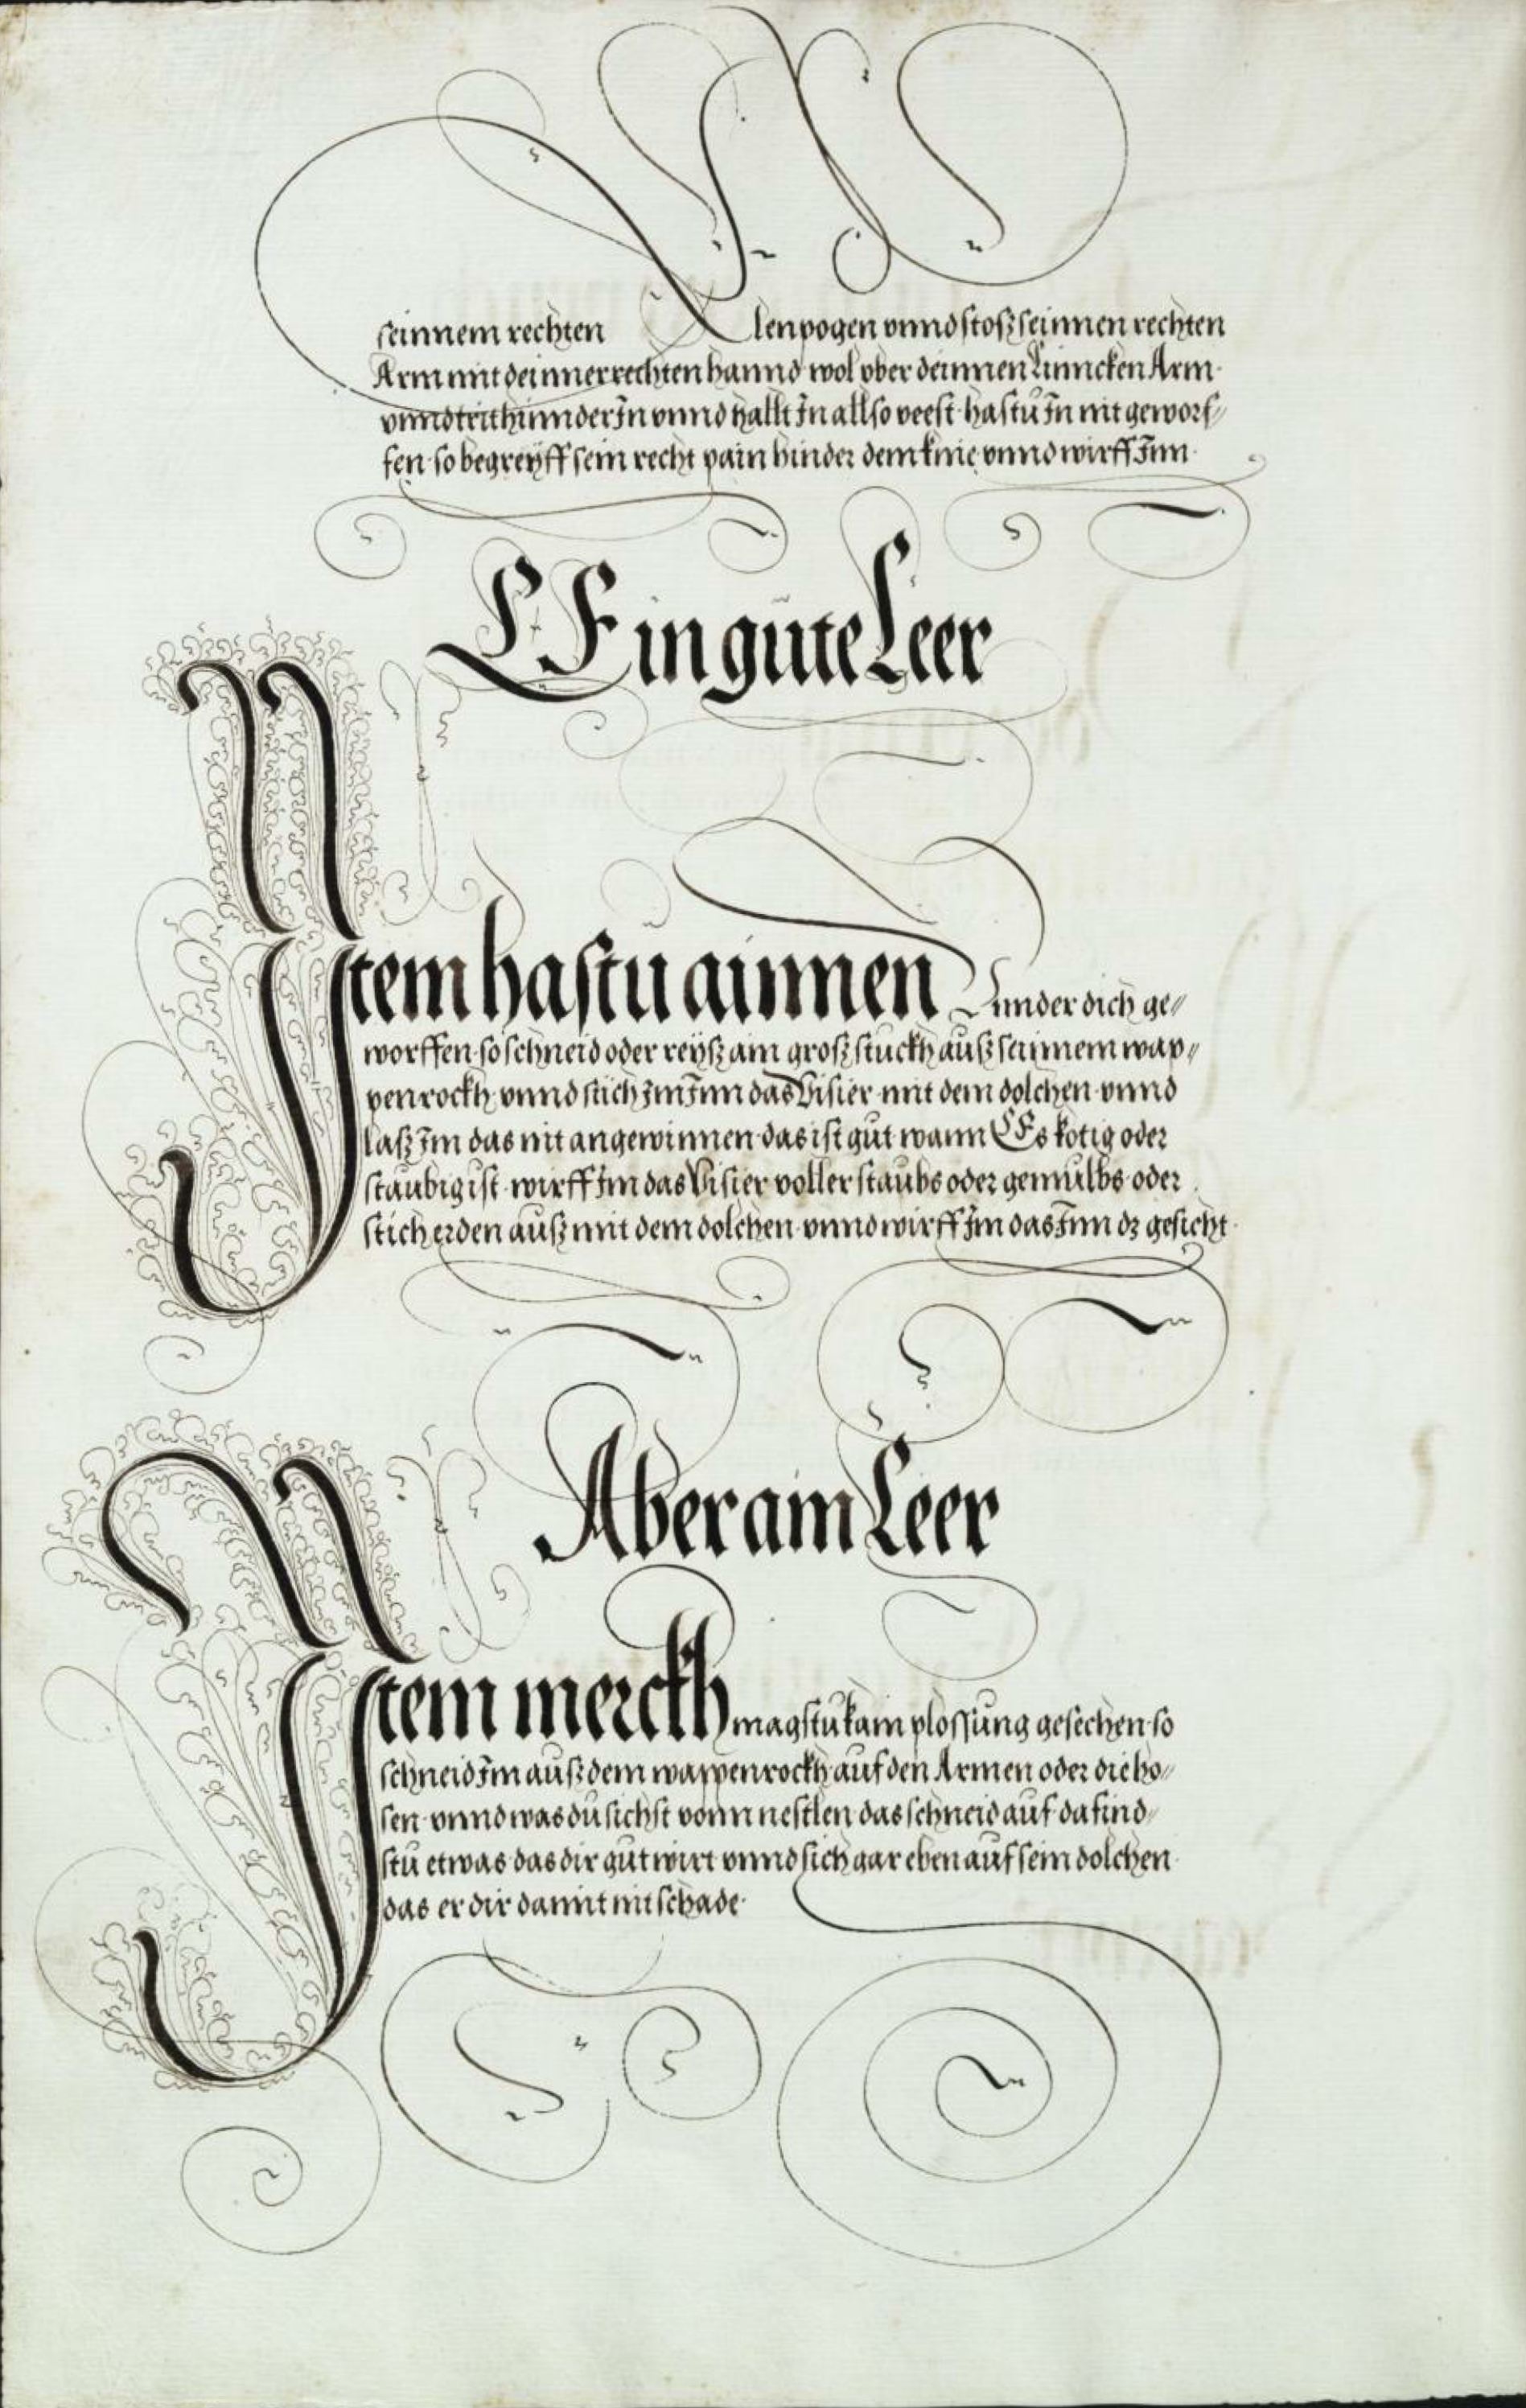 seinnem rechten Elenpogen vnnd stosz seinnen rechten
Arm mit deinner rechten hannd wol vber deinnen Linncken Arm·
vnnd trit hinnder In vnnd hallt In allso veest· hastu In nit geworf⸗
fen· so begreyff sein recht pain hinder dem knie vnnd wirff Inn·
Ein gute Leer
Item hastu ainnen vnnder dich ge⸗
worffen· so schneid oder reysz ain grosz stuckh ausz seinnem wap⸗
penrockh vnnd stich Im Inn das Visier mit dem dolchen· vnnd
lasz Im das nit angewinnen· das ist gut wann Es kotig oder
staubig ist· wirff Im das Visier voller staubs oder gemulbs· oder
stich erden ausz mit dem dolchen· vnnd wirff Im das Inn dz gesicht·
Aber ain Leer
Item merckh magstu kain plossung gesechen· so
schneid Im ausz dem wappenrockh auf den Armen oder die ho⸗
sen· vnnd was du sichst vonn nestlen das schneid auf· da find⸗
stu etwas das dir gut wirt vnnd sich gar eben auf sein dolchen·
das er dir damit nit schade·